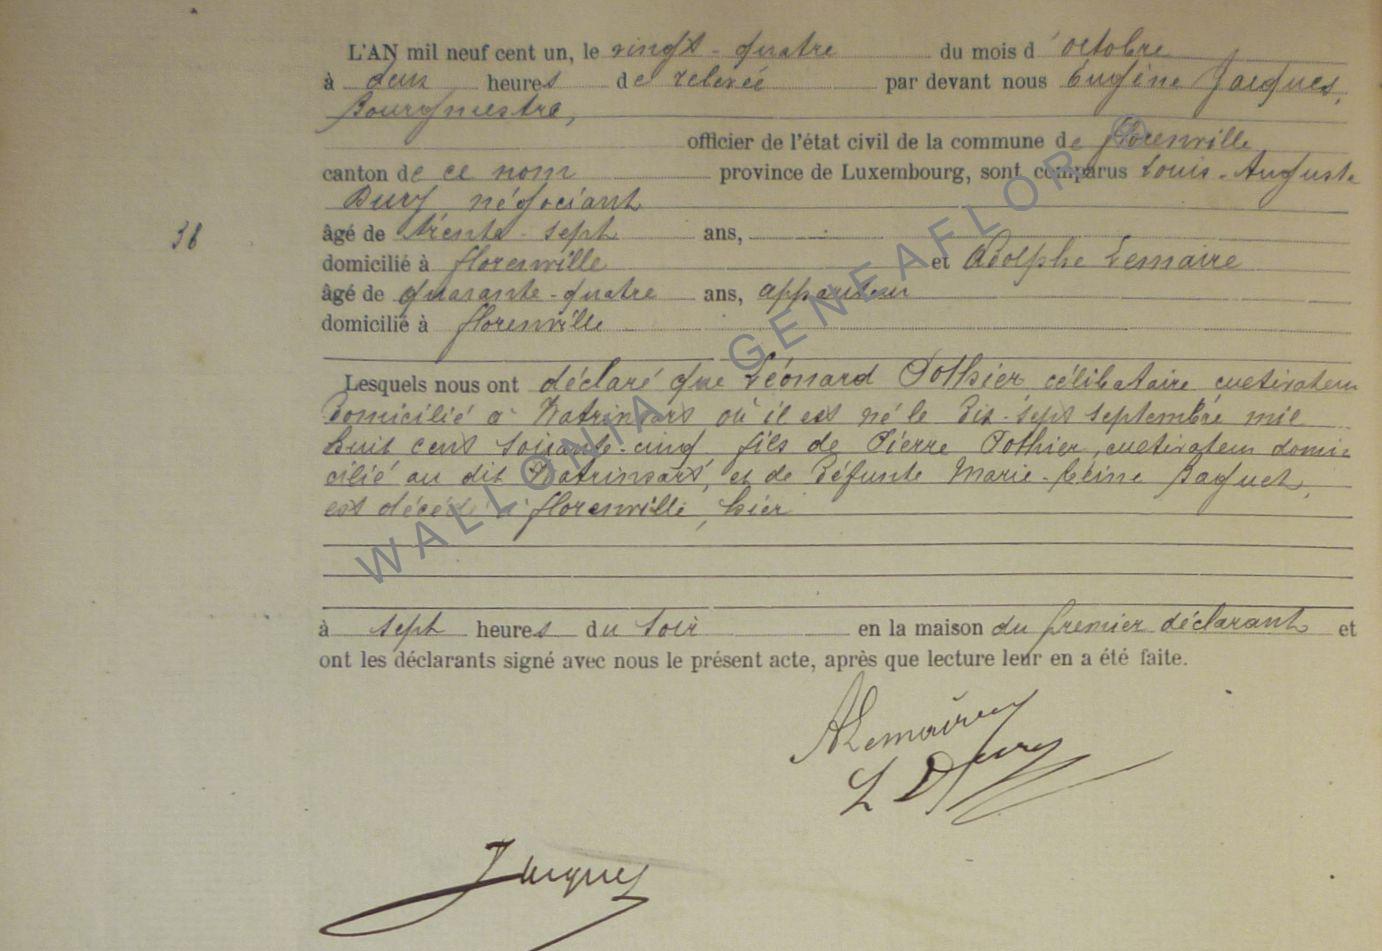 L'AN mil neuf cent un, le vingt-quatre du mois d'octobre
à deux heures de relevée par devant nous Eugène Jacques,
Bourgmestre,
officier de l'état civil de la commune de florenville
canton de ce nom province de Luxembourg, sont comparus Louis-Auguste
Dury négociant
38
âgé de trente-sept ans,
domicilié à florenville et Adolphe Lemaire
âgé de quarante-quatre ans, appariteur
domicilié à florenville
Lesquels nous ont déclaré que Léonard Pothier célibataire cultivateur
domicilié à Watrinsart où il est né le dix-sept septembre mil
huit cent soixante-cinq fils de Pierre Pothier, cultivateur domi-
cilié au dit Watrinsart, et de défunte Marie-Reine Paquet,
est décédé à florenville, hier
à sept heures du soir en la maison du premier déclarant et
ont les déclarants signé avec nous le présent acte, après que lecture leur en a été faite.
ALemaire
L Dury
Jacques
WALLONIA GENEAFLOR ©